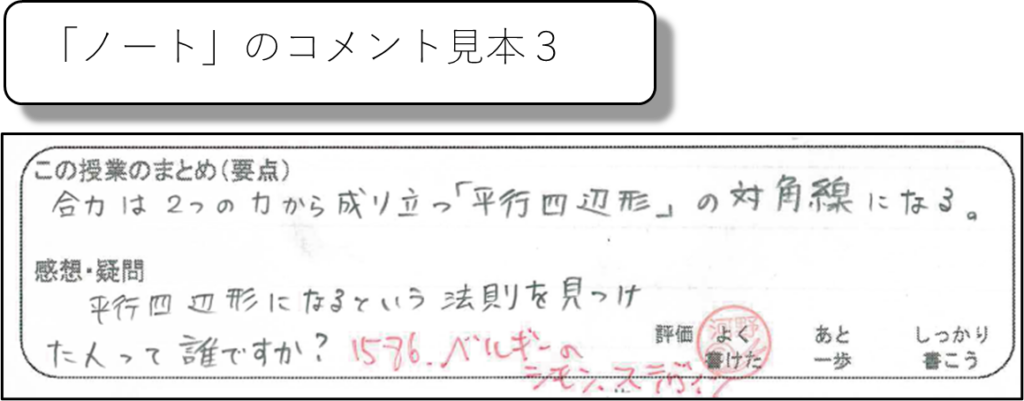 「ノート」のコメント見本３
この授業のまとめ(要点)
合力は2つの力から成り立つ「平行四辺形」の対角線になる。
感想・疑問
平行四辺形になるという法則を見つけ
た人って誰ですか？ 1586.ベルギーの
シモン、ステヴィン
評価 よく書けた あと一歩 しっかり書こう
河野